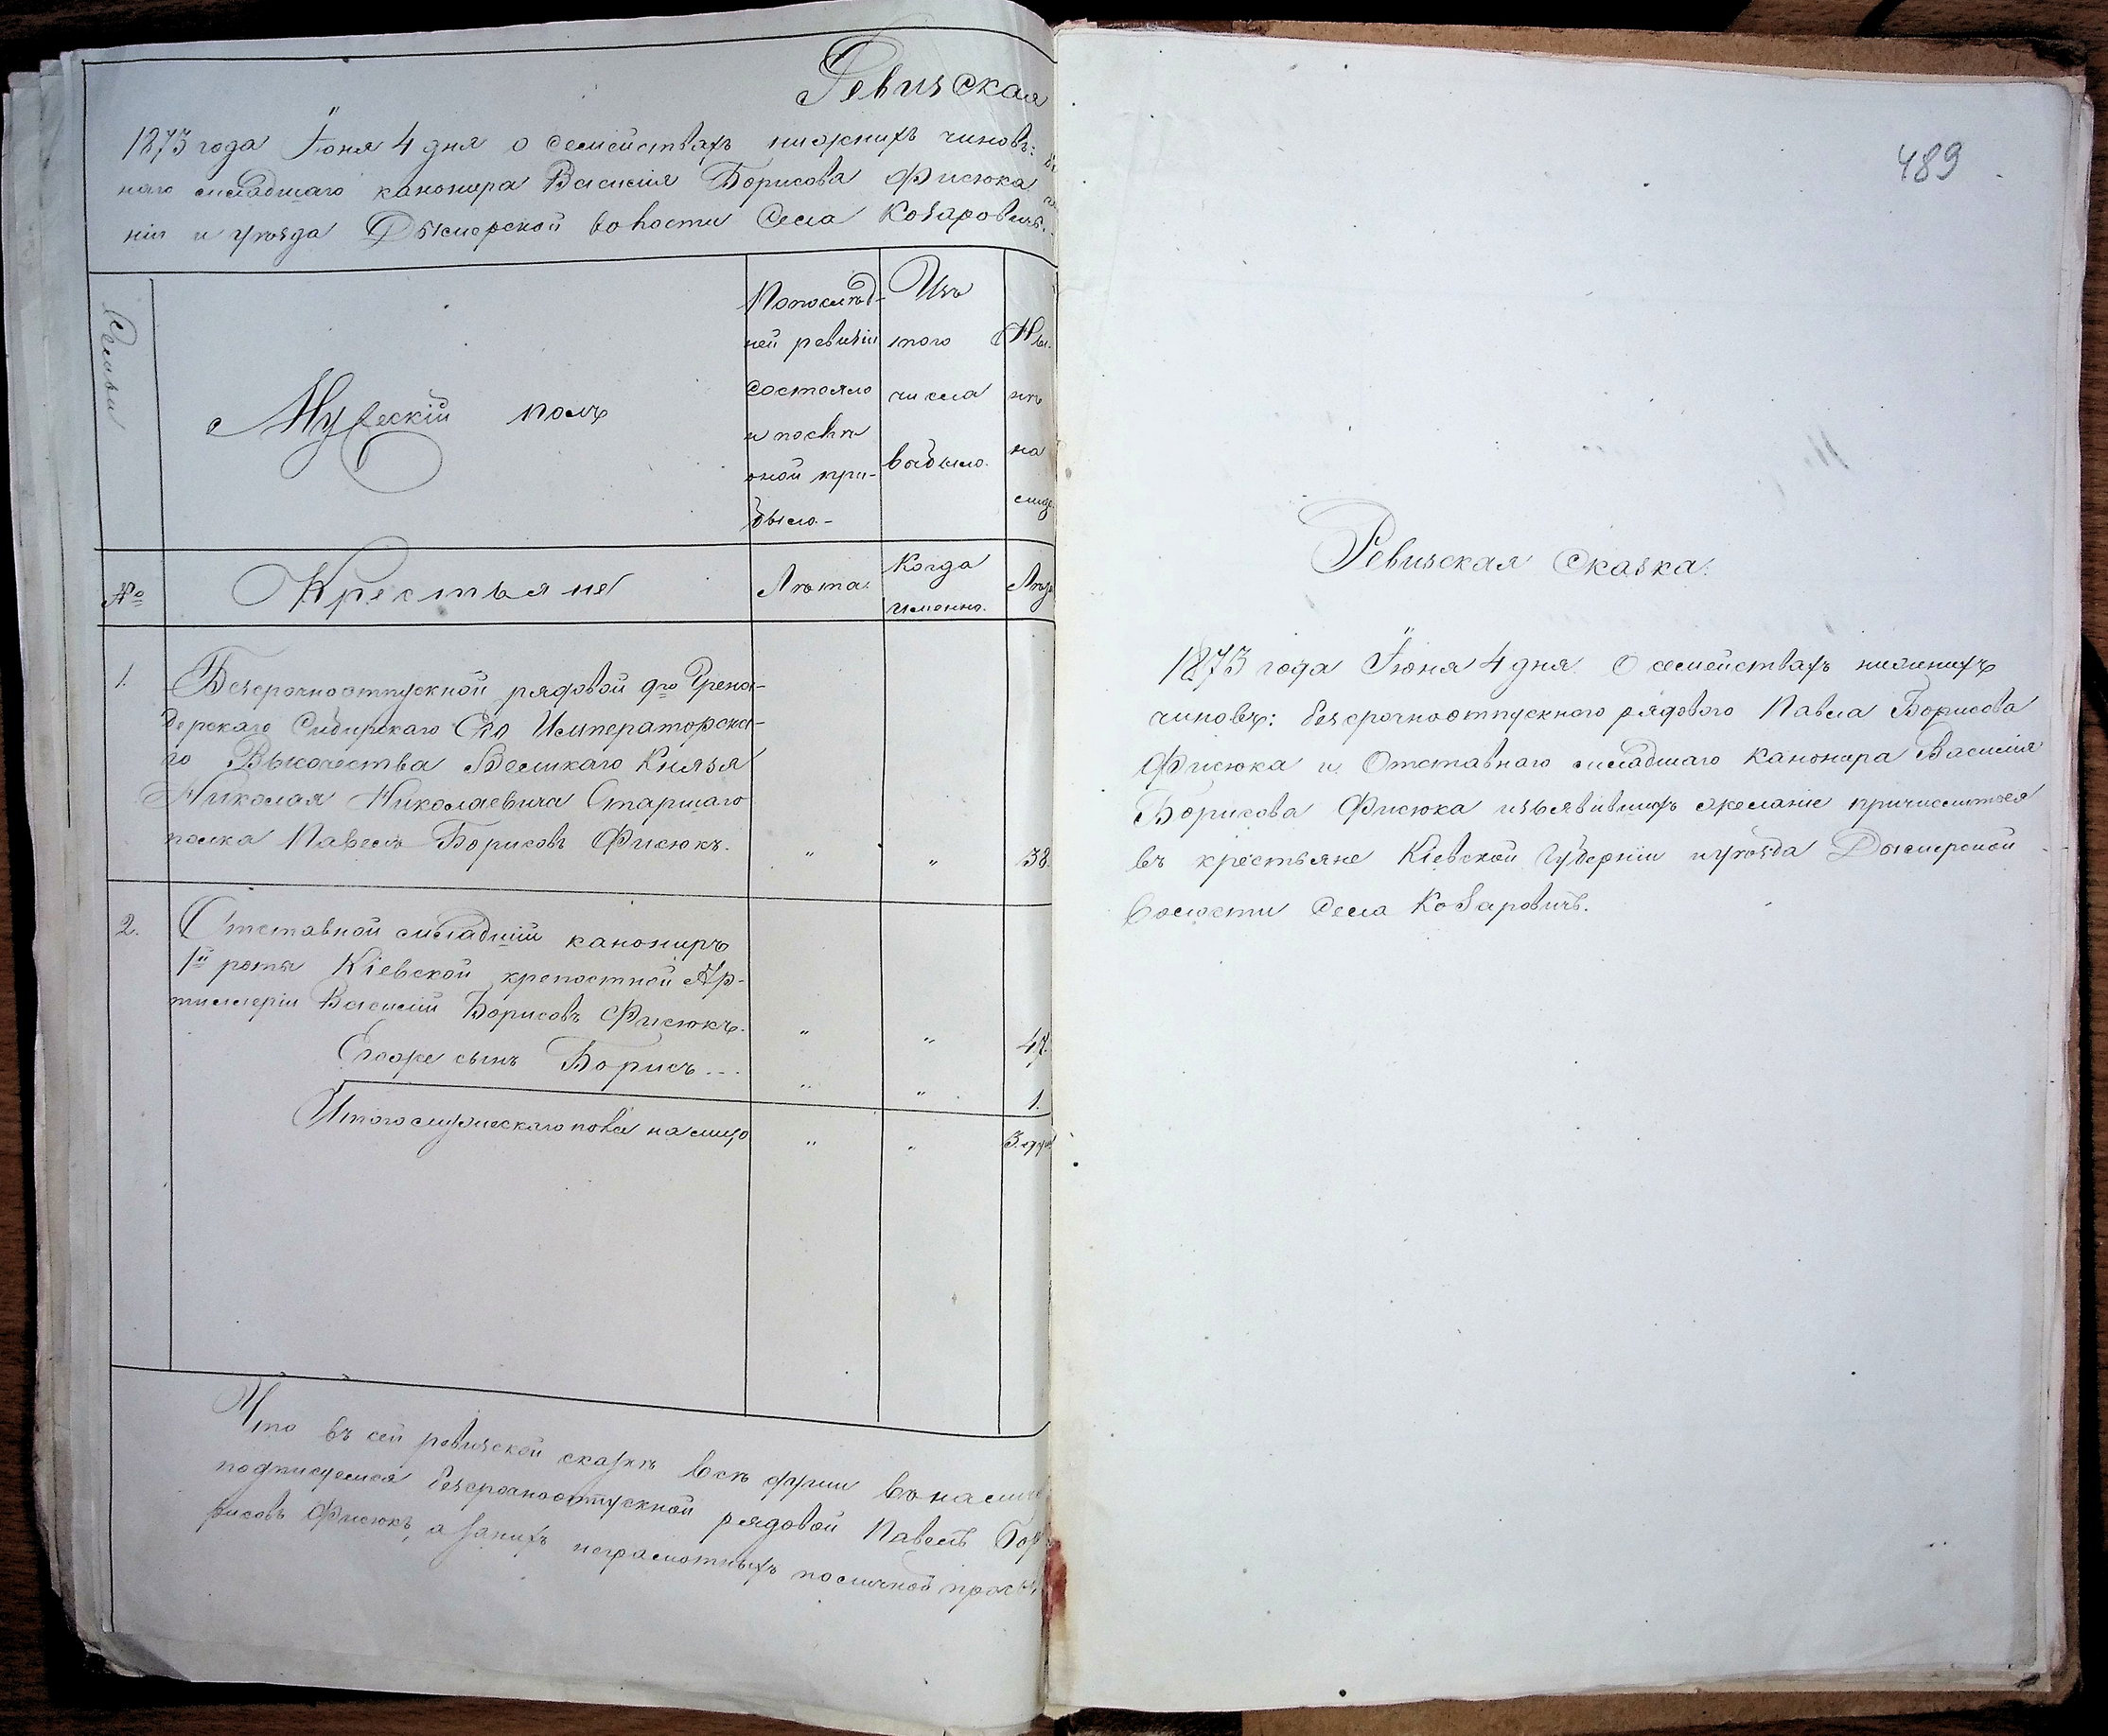 Ревизская
1873 года Іюня 4 дня о семействахъ нижнихъ чиновъ:
наго младшаго канонира Василія Борисова Фисюка
ніи и уѣзда Дымерской волости Села Козаровичъ.
Семьи
Мужескій полъ
Попослѣд-
ней ревизіи
состояло
и послѣ
оной при-
было.-
Изъ
того
числа
выбыло.
Ны-
нѣ
на
лице
№
Крестьяне
Лѣта.
Когда
именно.
Лѣта
1.
Безсрочноотпускной рядовой 9го Грена-
дерскаго Сибирскаго Его Императорска-
го Высочества Великаго Князя
Николая Николаевича Старшаго
полка Павелъ Борисовъ Фисюкъ. " " 38.
2.
Отставной младшій канониръ
1й роты Кіевской крепостной Ар-
тиллеріи Василій Борисовъ Фисюкъ. " " 47.
Егоже сынъ Борисъ... " " 1.
Итого мужескаго пола на лицо " " 3. души
Что въ сей ревизской сказкѣ всѣ души
подписуемся безсрочноотпускной рядовой Павелъ Бор
рисовъ Фисюкъ, а занихъ неграмотныхъ поличной прозь
489
Ревизская Сказка.
1873 года Іюня 4 дня О семействахъ нижнихъ
чиновъ: безсрочноотпускного рядового Павла Борисова
Фисюка и Отставнаго младшаго Канонира Василія
Борисова Фисюка изъявившихъ желаніе причислиться
въ крестьяне Кіевской Губерніи и уѣзда Дымерской
Волости Села Козаровичъ.